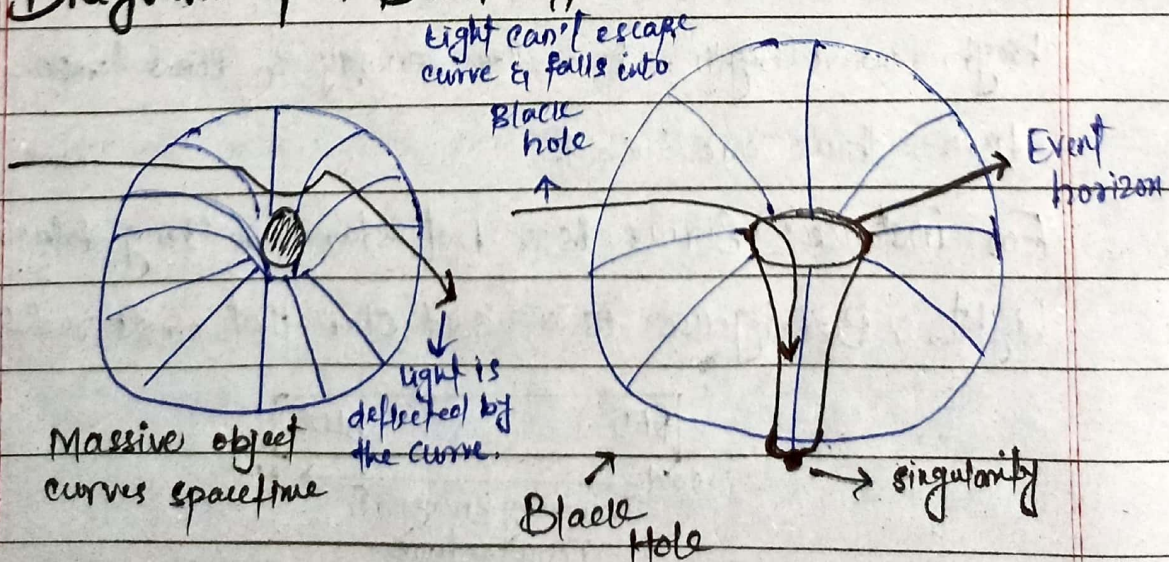 Light can't escape
curve & falls into
Black
hole
Event
horizon
Light is
deflected by
the curve.
Massive object
curves spacetime
singularity
Black
Hole